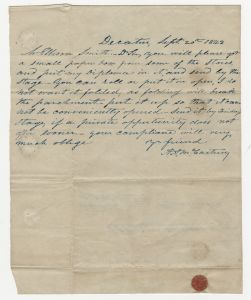 Decatur Sept 20th 1843
Smith - Dr Sir, you will please get
a small paper box from some of the Stores
and put my Diploma in it, and send by the
Stage - You can roll or put it in open I do
not want it folded, as folding will break
the parchment - put it up so that it can
not be conveniently opened. Send it by
Stage, if a private opportunity does not
offer sooner - your compliance will very
much oblige
yr friend